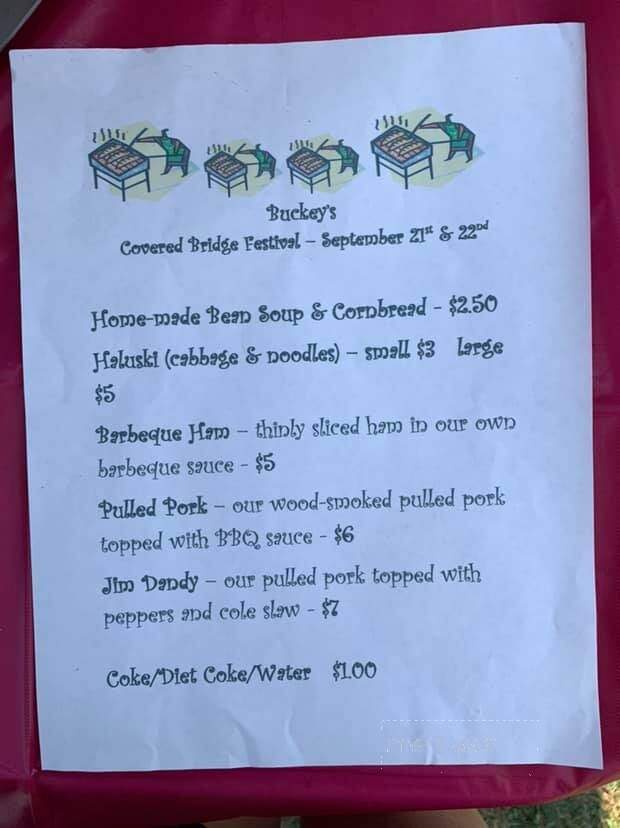 Buckey's
Covered Bridge Festival – September 21st & 22nd
Home-made Bean Soup & Cornbread - $2.50
Haluski (cabbage & noodles) – small $3 large
$5
Barbeque Ham – thinly sliced ham in our own
barbeque sauce - $5
Pulled Pork – our wood-smoked pulled pork
topped with BBQ sauce - $6
Jim Dandy – our pulled pork topped with
peppers and cole slaw - $7
Coke/Diet Coke/Water $1.00